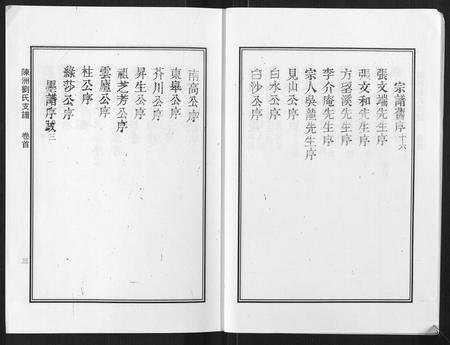 宗譜舊序十六
張文端先生序
張文和先生序
方望溪先生序
李介庵先生序
宗人吳龍先生序
見山公序
白水公序
白沙公序
南高公序
東皋公序
芥川公序
昇生公序
祖芝芳公序
雲廬公序
柱公序
綠莎公序
墨譜序跋三
陳洲劉氏支譜 卷首
三